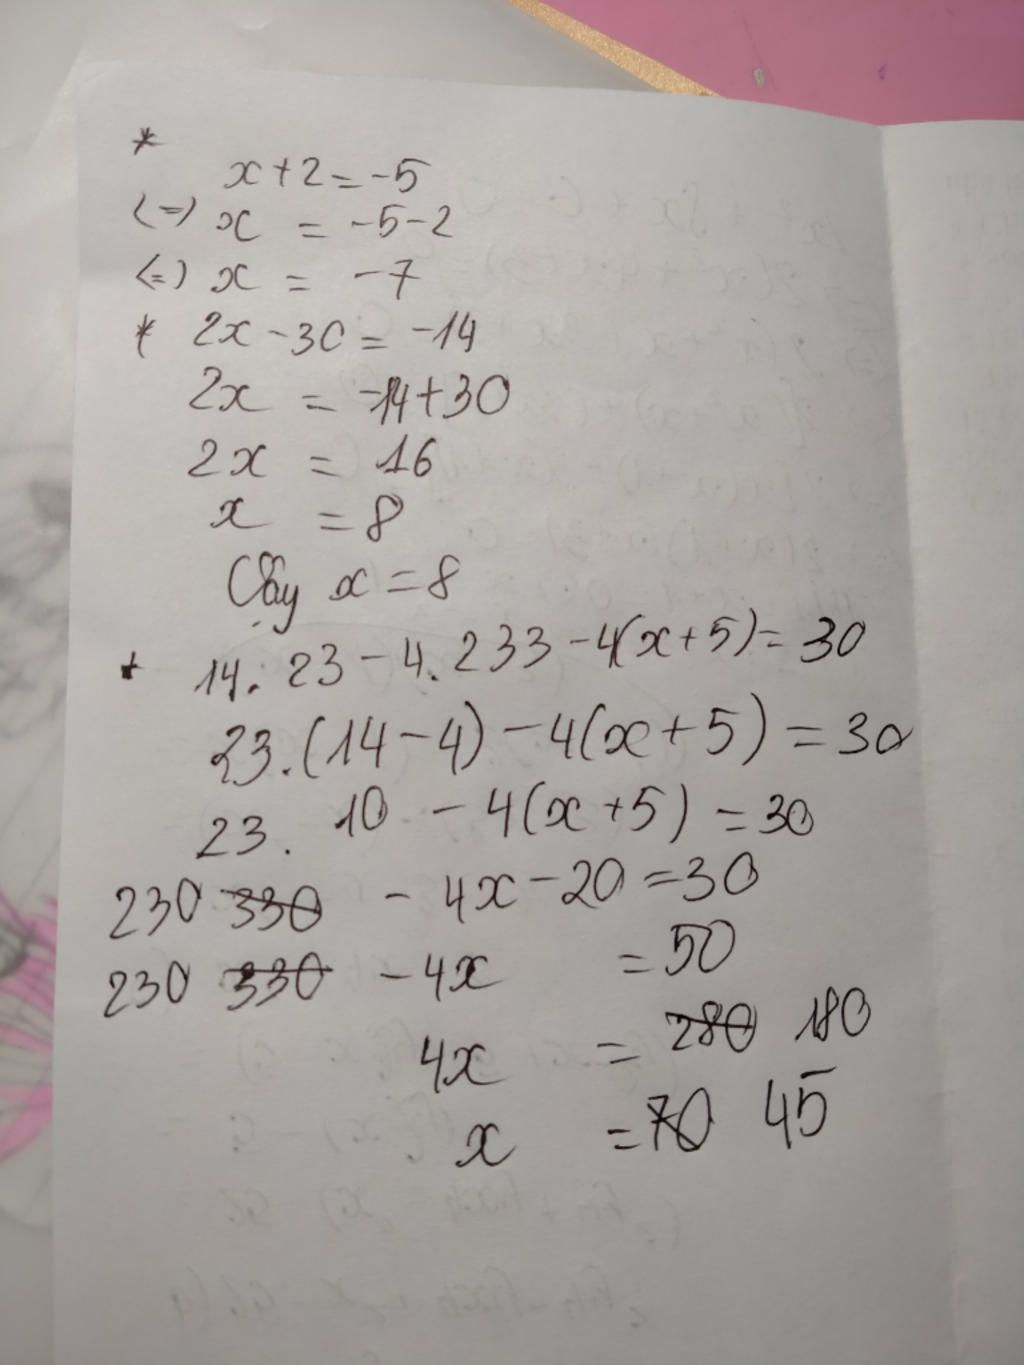 *
x + 2 = -5
(=) x = -5 - 2
(=) x = -7
* 2x - 30 = -14
2x = -14 + 30
2x = 16
x = 8
Vậy x = 8
* 14. 23 - 4. 233 - 4(x + 5) = 30
23. (14 - 4) - 4(x + 5) = 30
23. 10 - 4(x + 5) = 30
230 330 - 4x - 20 = 30
230 330 - 4x = 50
4x = 280 180
x = 70 45